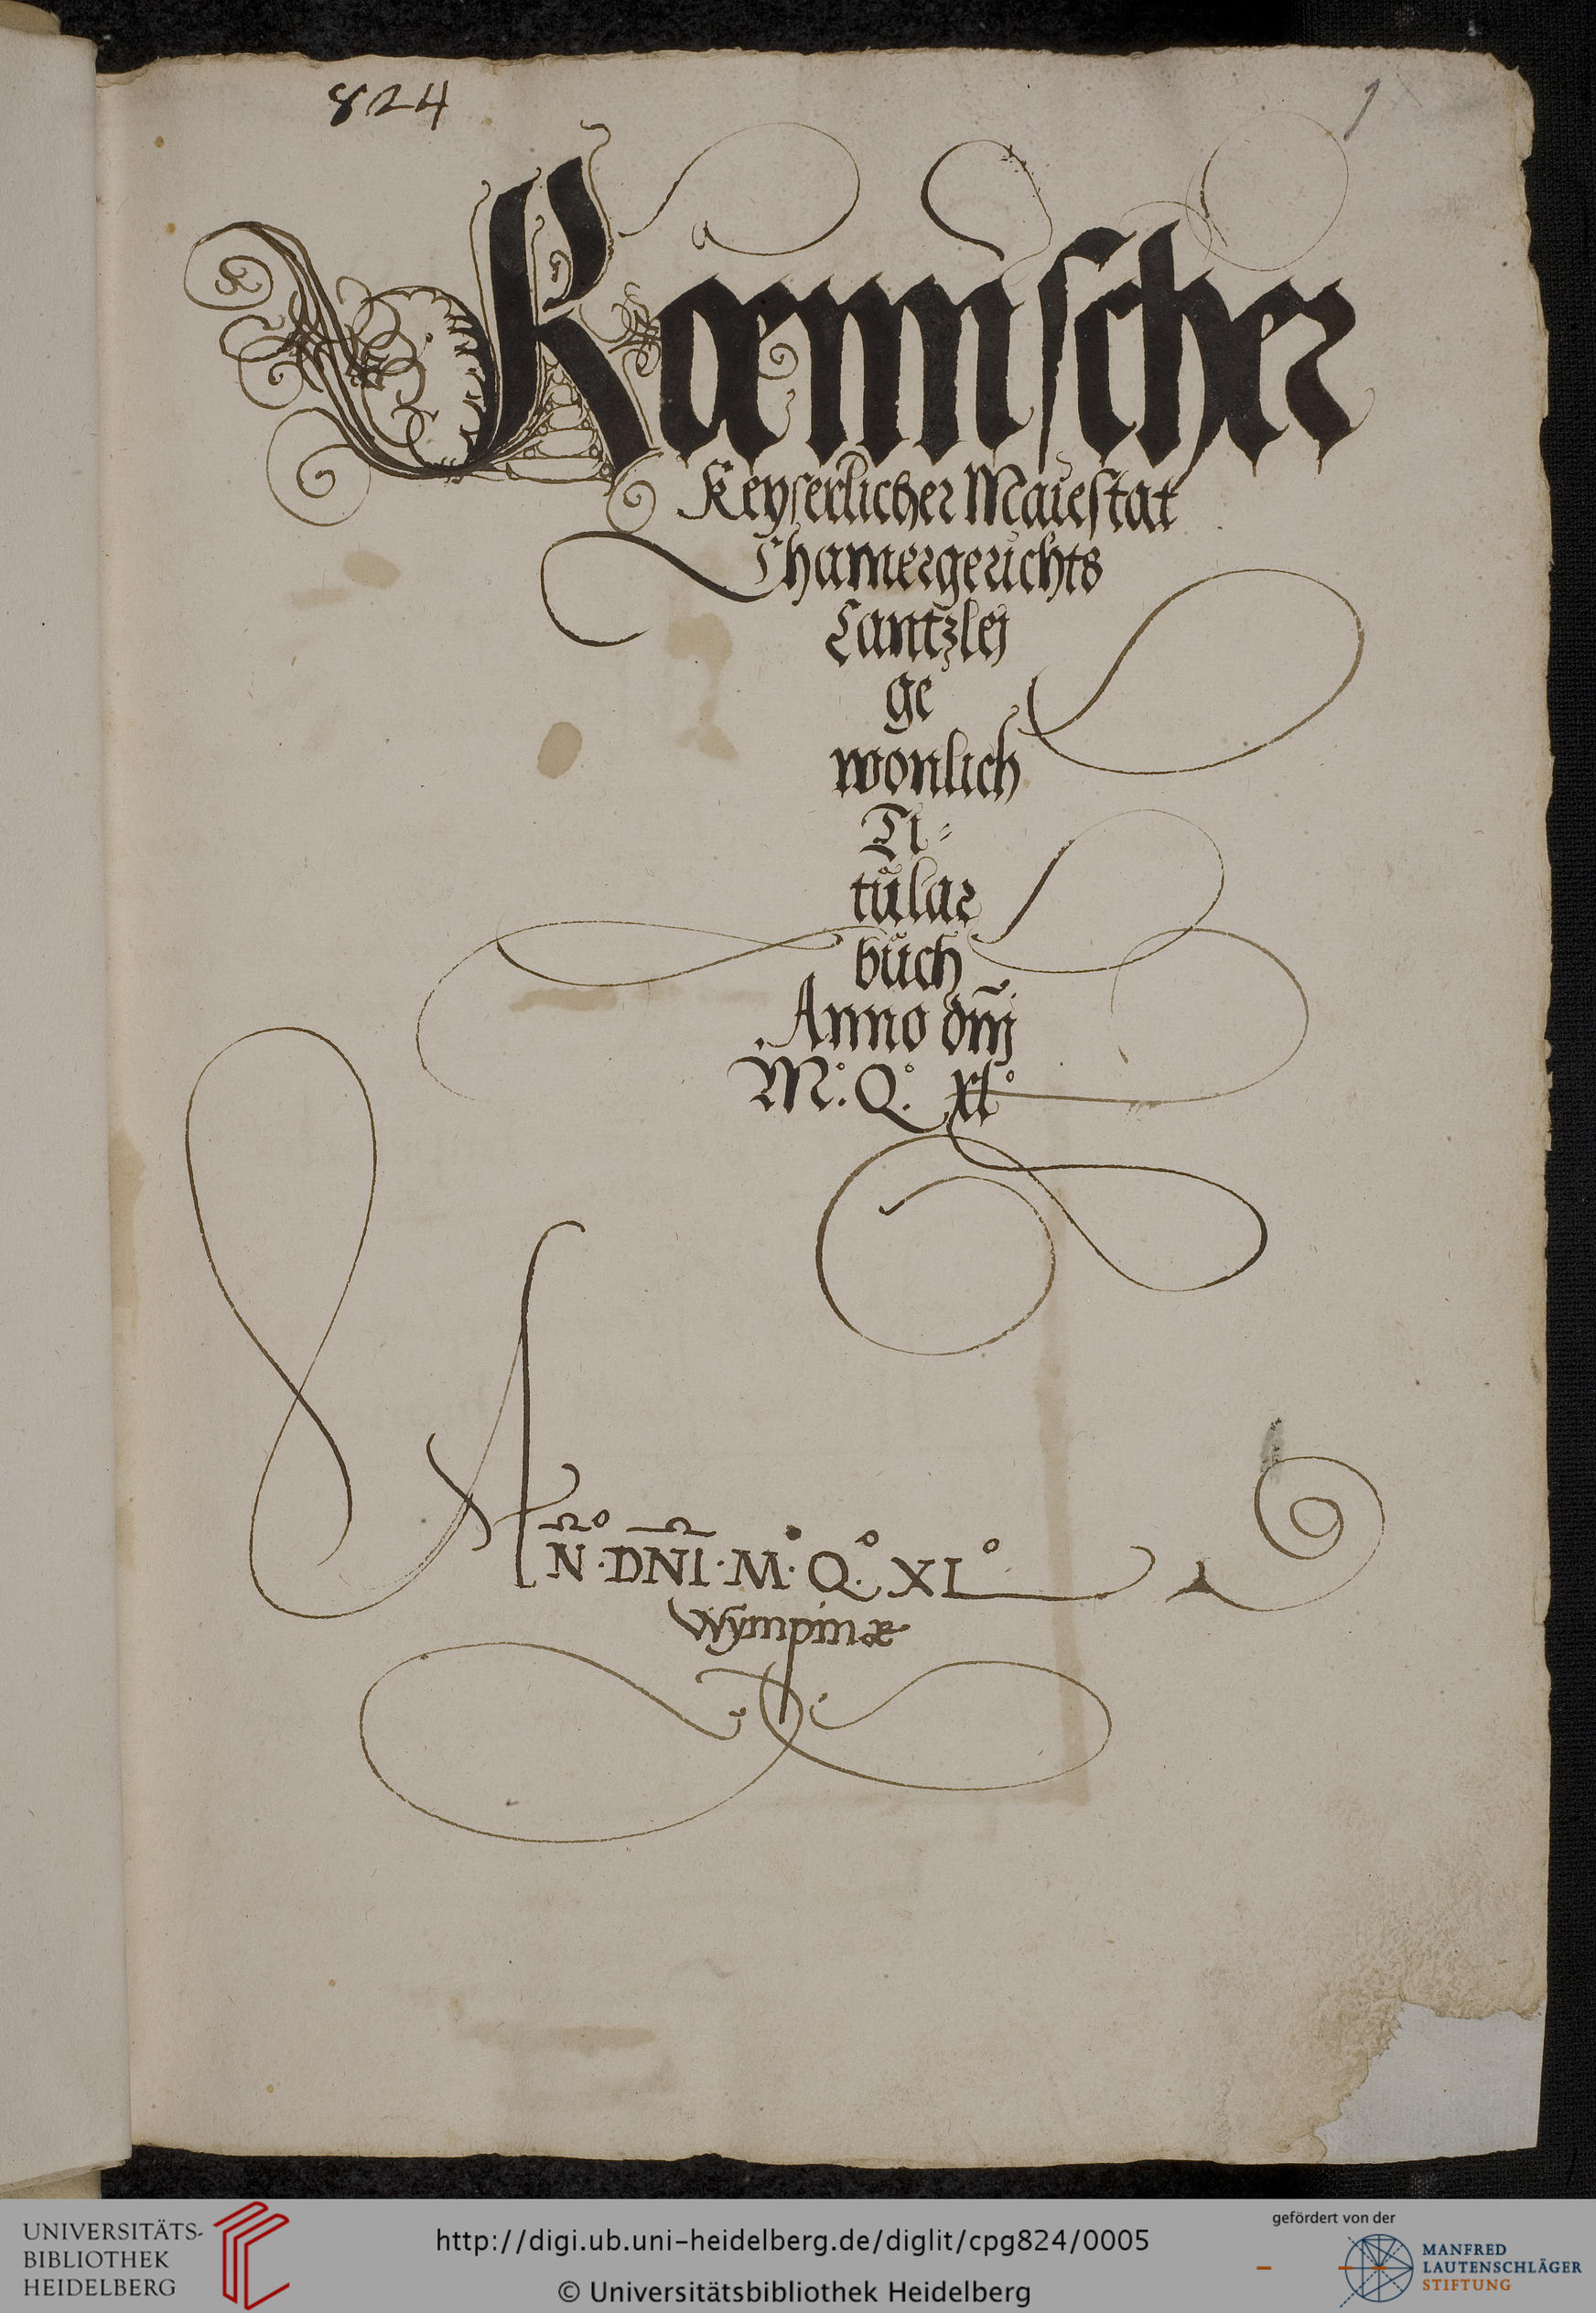 824
1
Raemischer
Keyserlicher Maiestat
Chamergerichts
Cantzlej
ge
wonlich
Ti=
tůlar
bůch
Anno dm̄j
M:° Q:° xl°
A
N̄°·DN̄I·M·° Q.° XL°
Wympinæ
UNIVERSITÄTS-
BIBLIOTHEK
HEIDELBERG
http://digi.ub.uni-heidelberg.de/diglit/cpg824/0005
© Universitätsbibliothek Heidelberg
gefördert von der
MANFRED
LAUTENSCHLÄGER
STIFTUNG